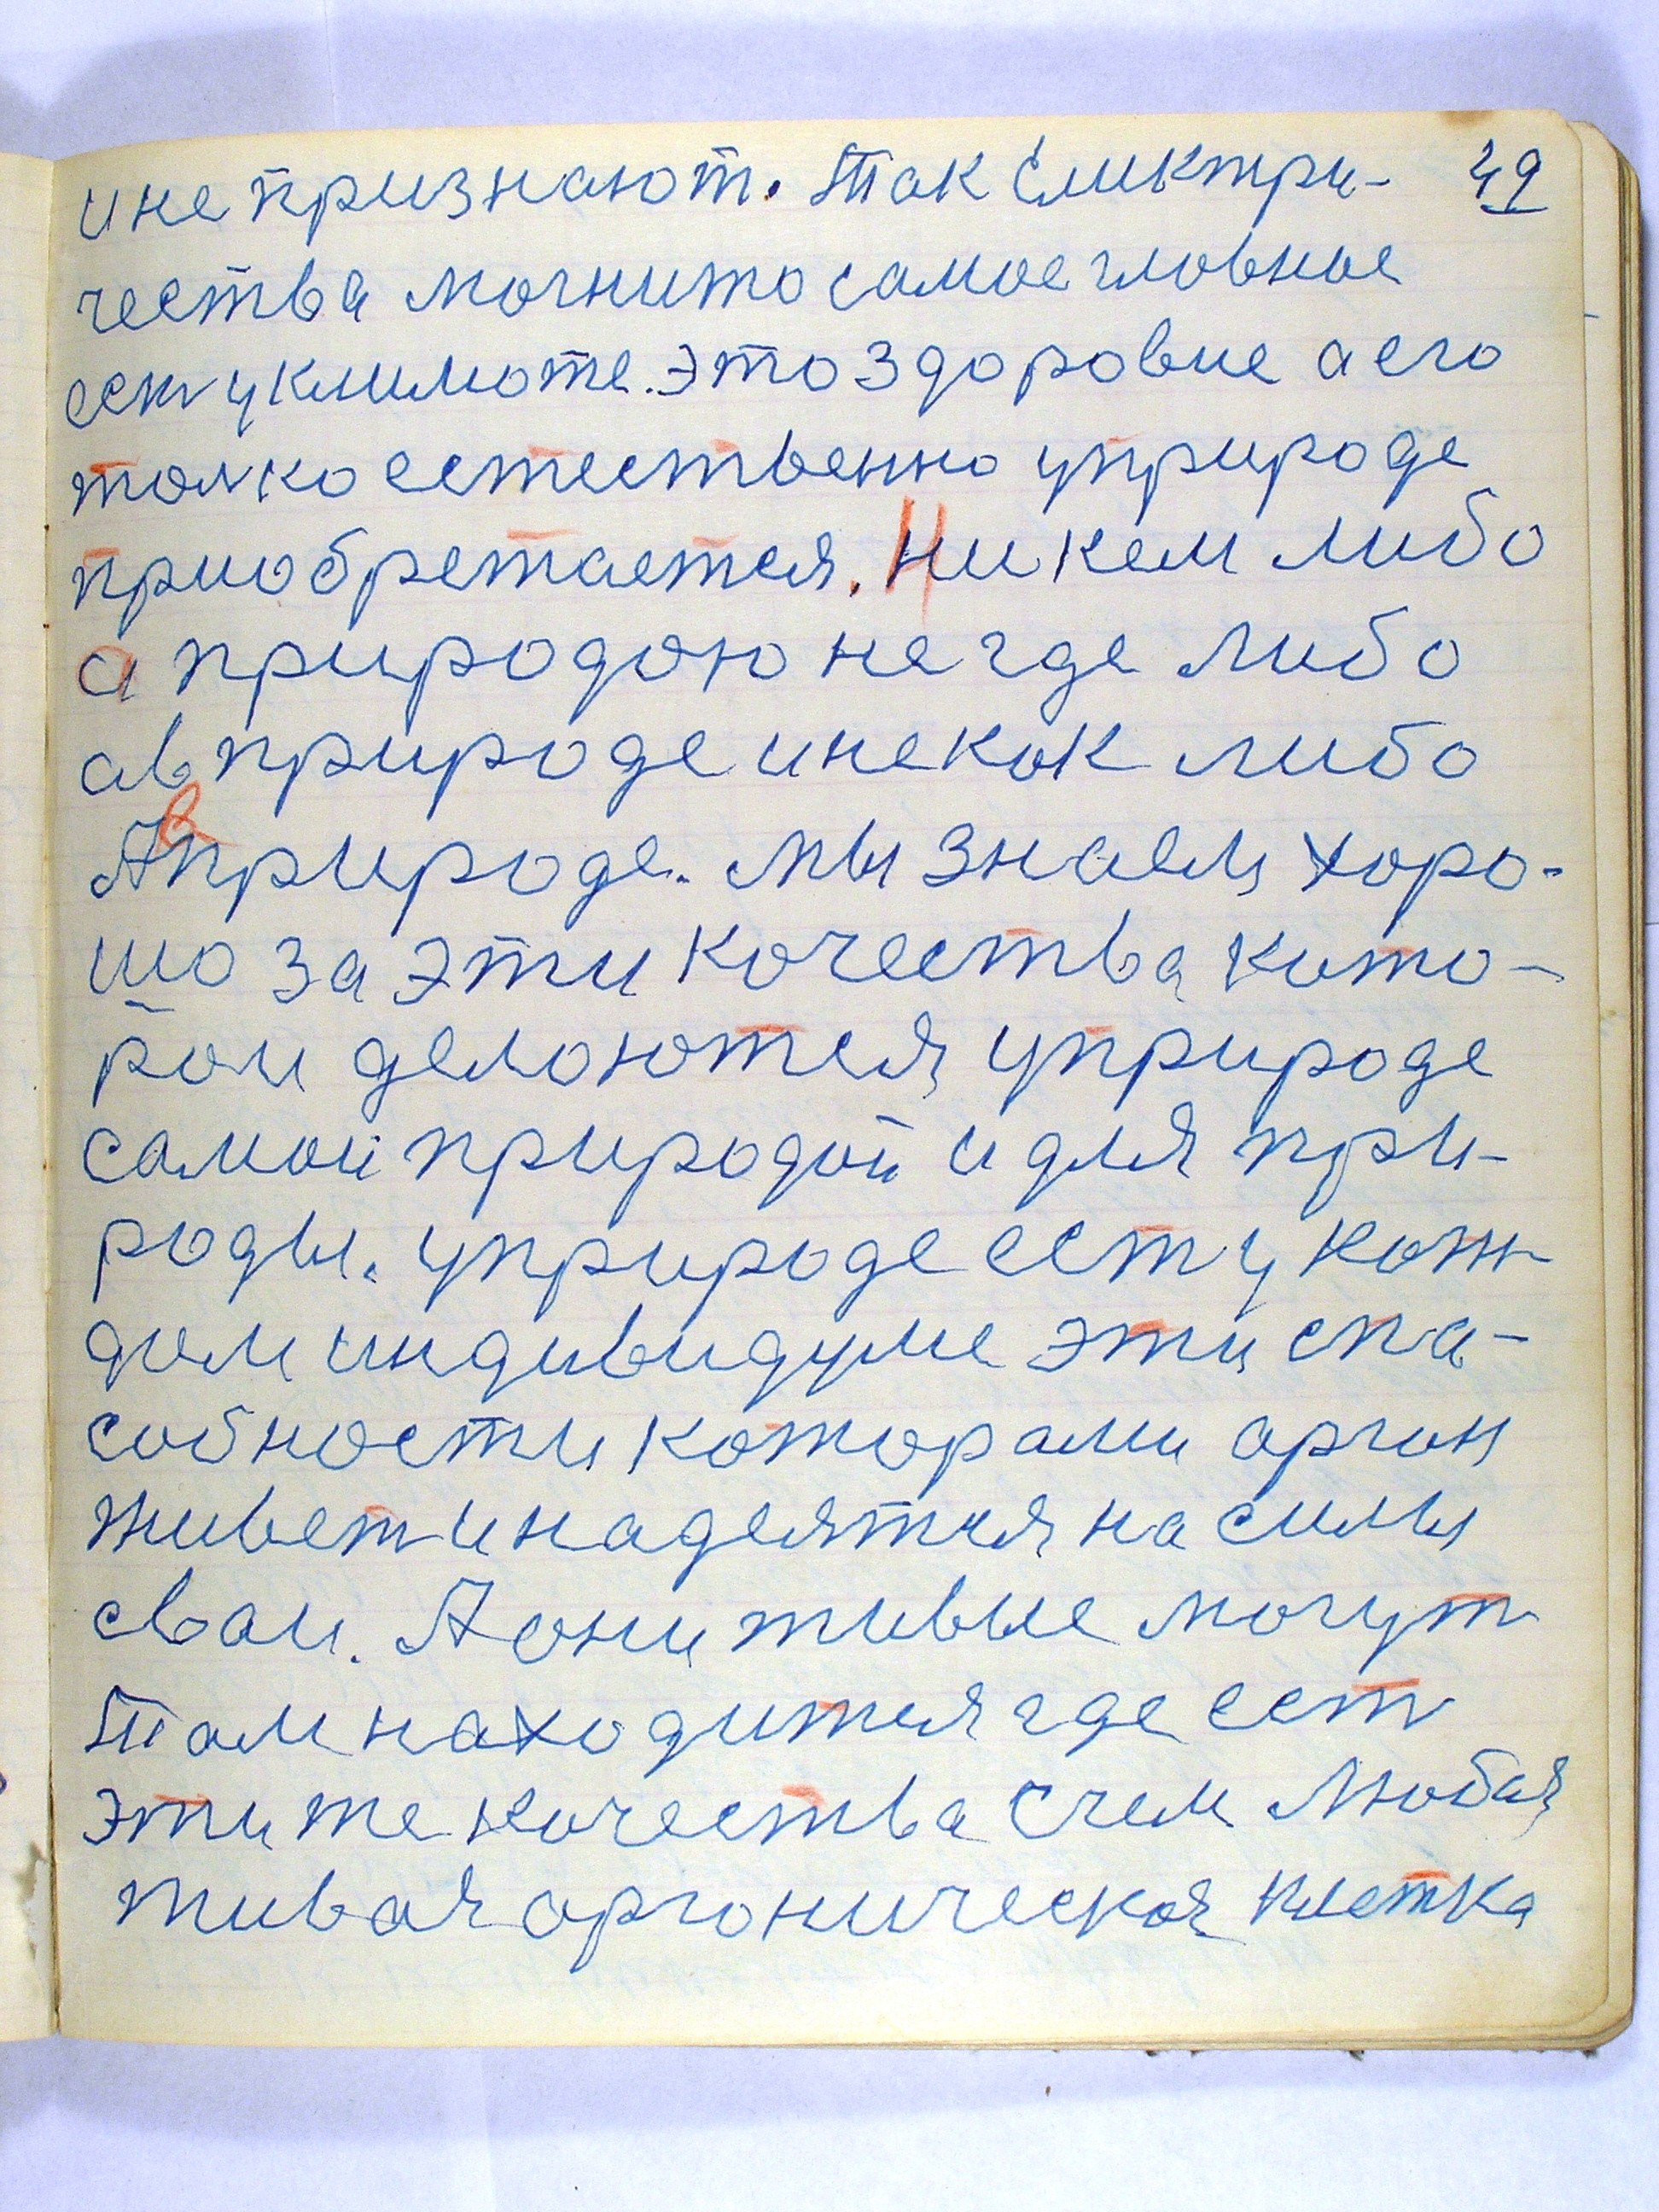 и не признают. Так Еликтри- 49
чества магнито самое главное
ест у климоте. это здоровие а его
толко естественно уприроде
приобретается. Ни кем либо
а природою не где либо
ав природе и не как либо
А в природе. мы знаем хоро-
шо за эти качества кото-
рои делаются уприроде
самой природой и для при-
роды. уприроде ест у каж
дом индивидуме эти спа-
собности которами орган
живет и надеятся на силы
сваи. А они живые могут
Там находится где ест
эти же качества с чем Любая
живая органическая клетка